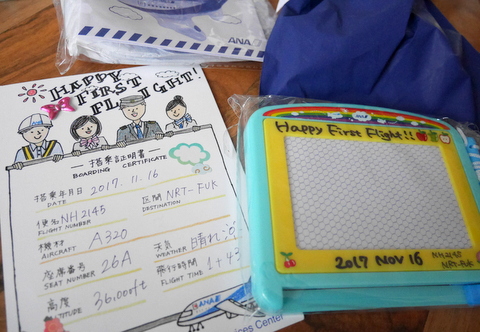 ANA
HAPPY
FIRST
FLIGHT!
搭乗証明書
BOARDING CERTIFICATE
搭乗年月日 2017.11.16
DATE
便名 NH2145
FLIGHT NUMBER
区間 NRT-FUK
DESTINATION
機材 A320
AIRCRAFT
天気 晴れ
WEATHER
座席番号 26A
SEAT NUMBER
飛行時間 1+43
FLIGHT TIME
高度 36,000ft
ALTITUDE
ANA
Services Center
Happy First Flight!!
2017 NOV 16
NH2145
NRT-FUK